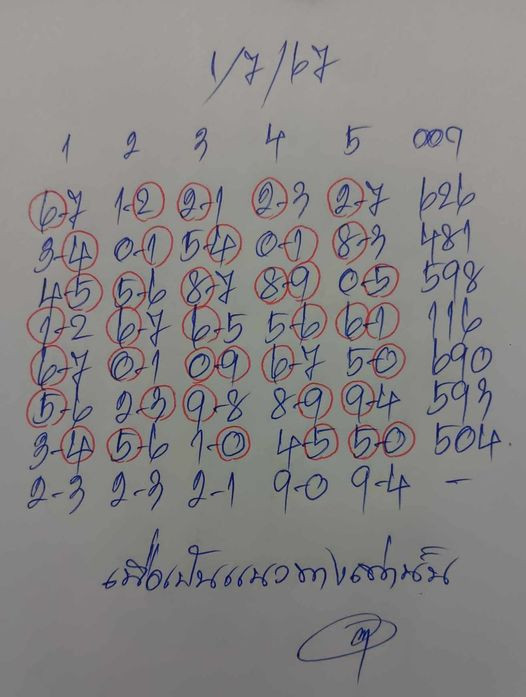 1/7/67
1 2 3 4 5 ออก
6-7 1-2 2-1 2-3 2-7 626
3-4 0-1 5-4 0-1 8-3 481
4-5 5-6 8-7 8-9 0-5 598
1-2 6-7 6-5 5-6 6-1 116
6-7 0-1 0-9 6-7 5-0 690
5-6 2-3 9-8 8-9 9-4 593
3-4 5-6 1-0 4-5 5-0 504
2-3 2-3 2-1 9-0 9-4 -
เพื่อเป็นแนวทางเท่านั้น